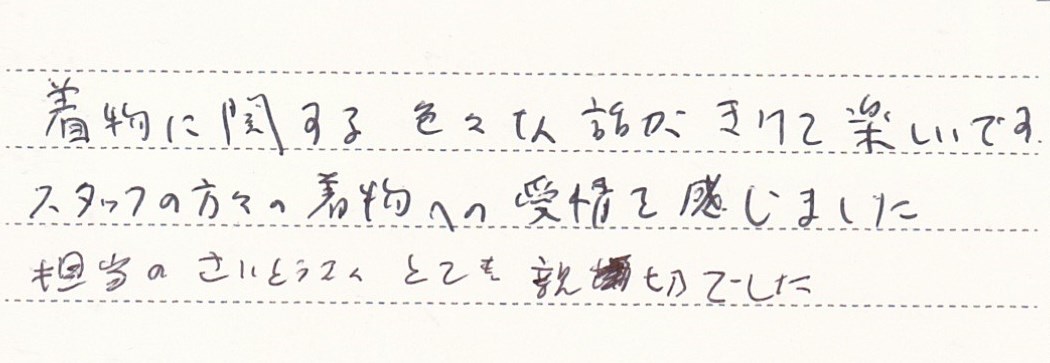 着物に関する色々な話がきけて楽しいです。
スタッフの方々の着物への愛情を感じました
担当のさいとうさんとても親切でした